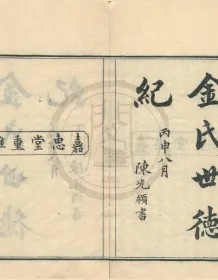 金氏世德
紀
丙申八月
陳光頲書
嘉惠堂重雕